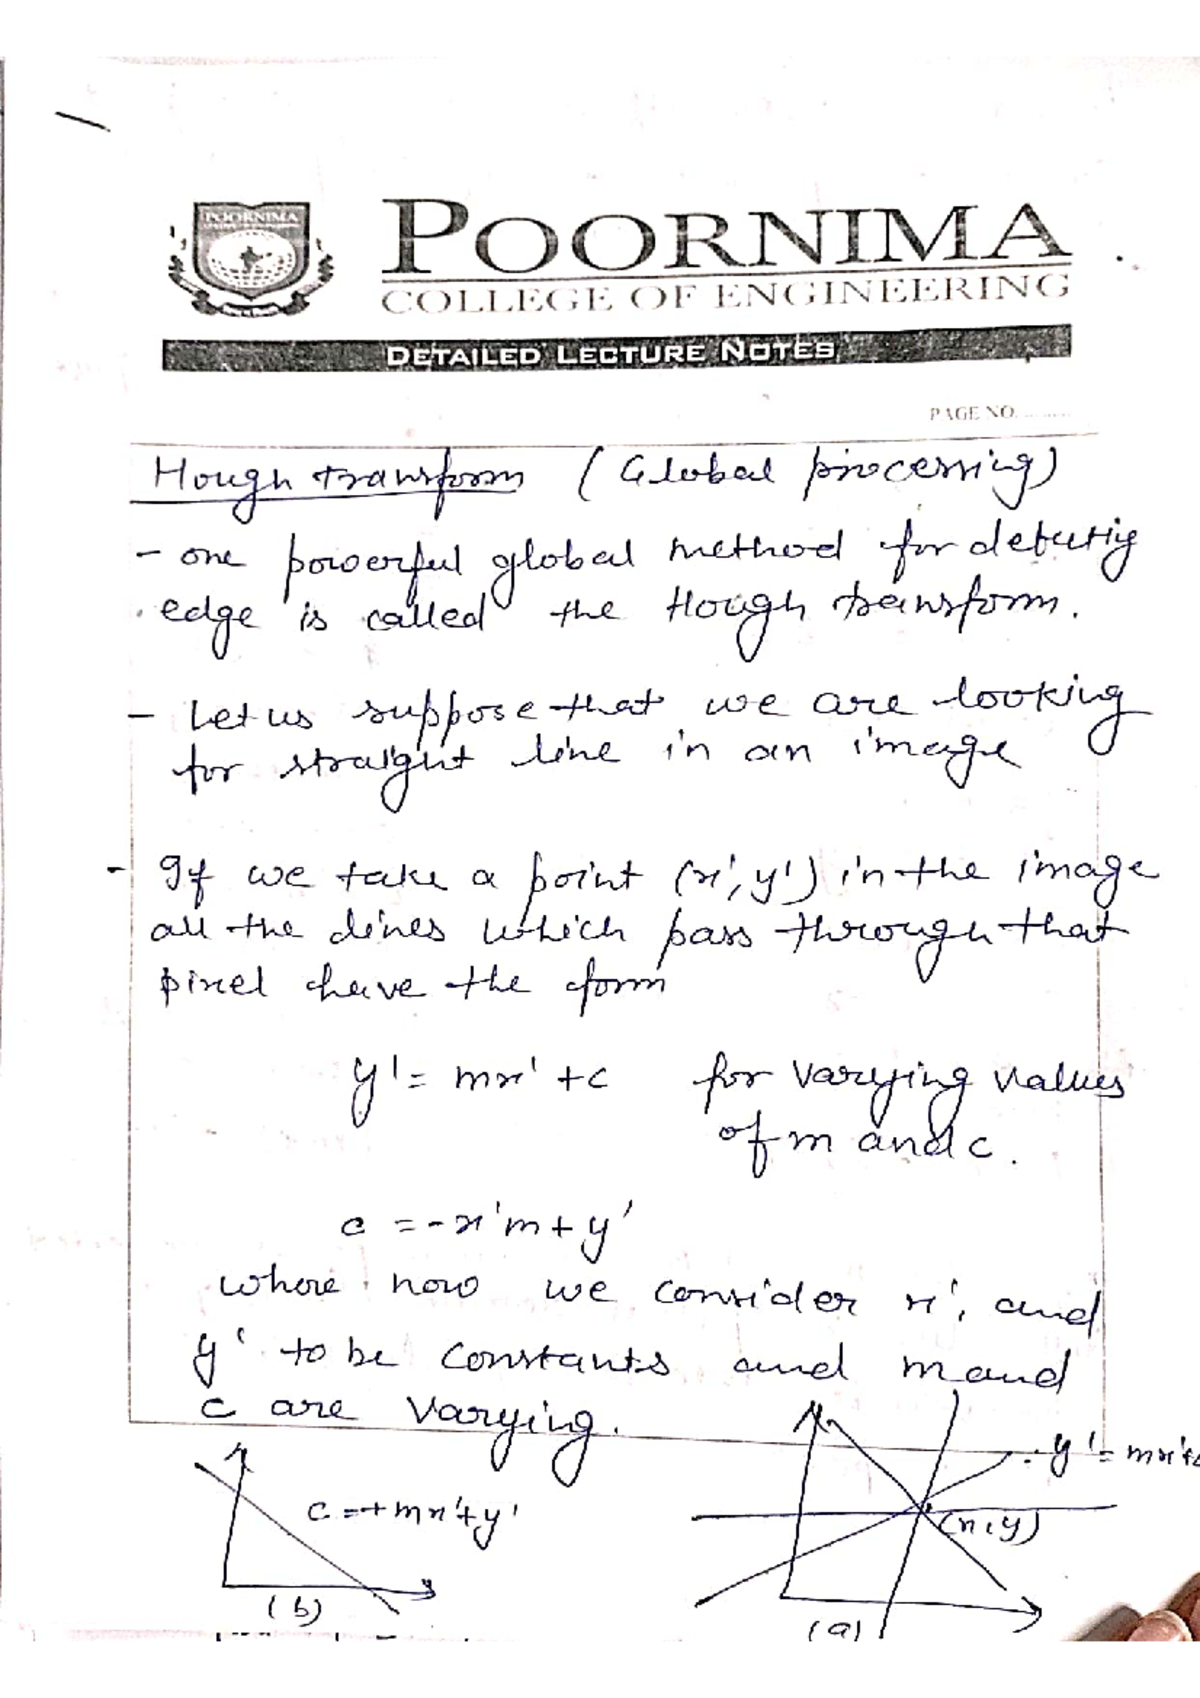 POORNIMA
POORNIMA
COLLEGE OF ENGINEERING
DETAILED LECTURE NOTES
PAGE NO. ..........
Hough transform (Global processing)
- one powerful global method for detecting
edge is called the Hough transform.
- Let us suppose that we are looking
for straight line in an image
- If we take a point (x', y') in the image
all the lines which pass through that
pixel have the form
y' = mx' + c for varying values
of m and c.
c = -x'm + y'
where now we consider x', and
y' to be constants and m and
c are varying.
y' = mx'+c
c = + mx' + y'
(x, y)
(b)
(a)